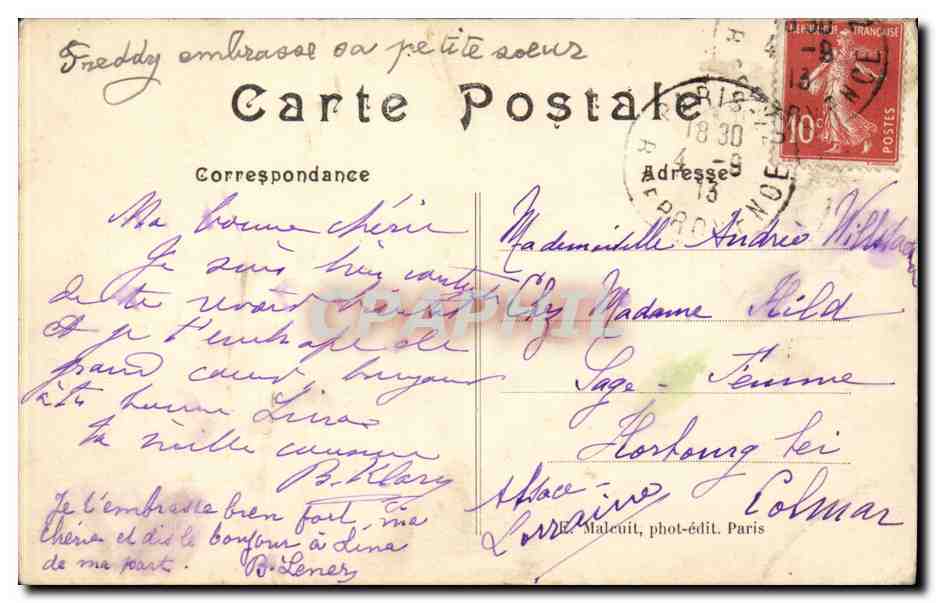 Freddy embrasse sa petite soeur
Carte Postale
Correspondance
Ma bonne chérie
Je suis bien
de te revoir
Et je t'embrasse de
grand coeur bonjour
à ta bonne Lina
ta vieille cousine
B. Klary
Je t'embrasse bien fort, ma
chérie et dis le bonjour à Lina
de ma part.
B. Lener
Adresse
Mademoiselle Andrée
Chez Madame Hild
Sage-Femme
Horbourg bei
Colmar
Alsace-
Lorraine
E. Malcuit, phot-édit. Paris
CPAPHIL
PARIS
18 30
4 -9
13
R. DE PROVENCE
FRANÇAISE
10c
POSTES